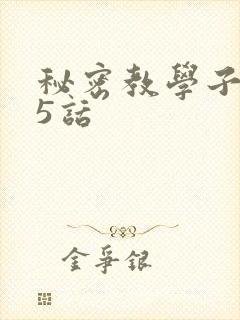 秘密教學子
5話
金爭銀